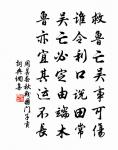 救魯亡吳事可傷
誰令利口說田常
吳亡必定由端木
魯亦宜其運不長
周曇春秋戰國門子貢